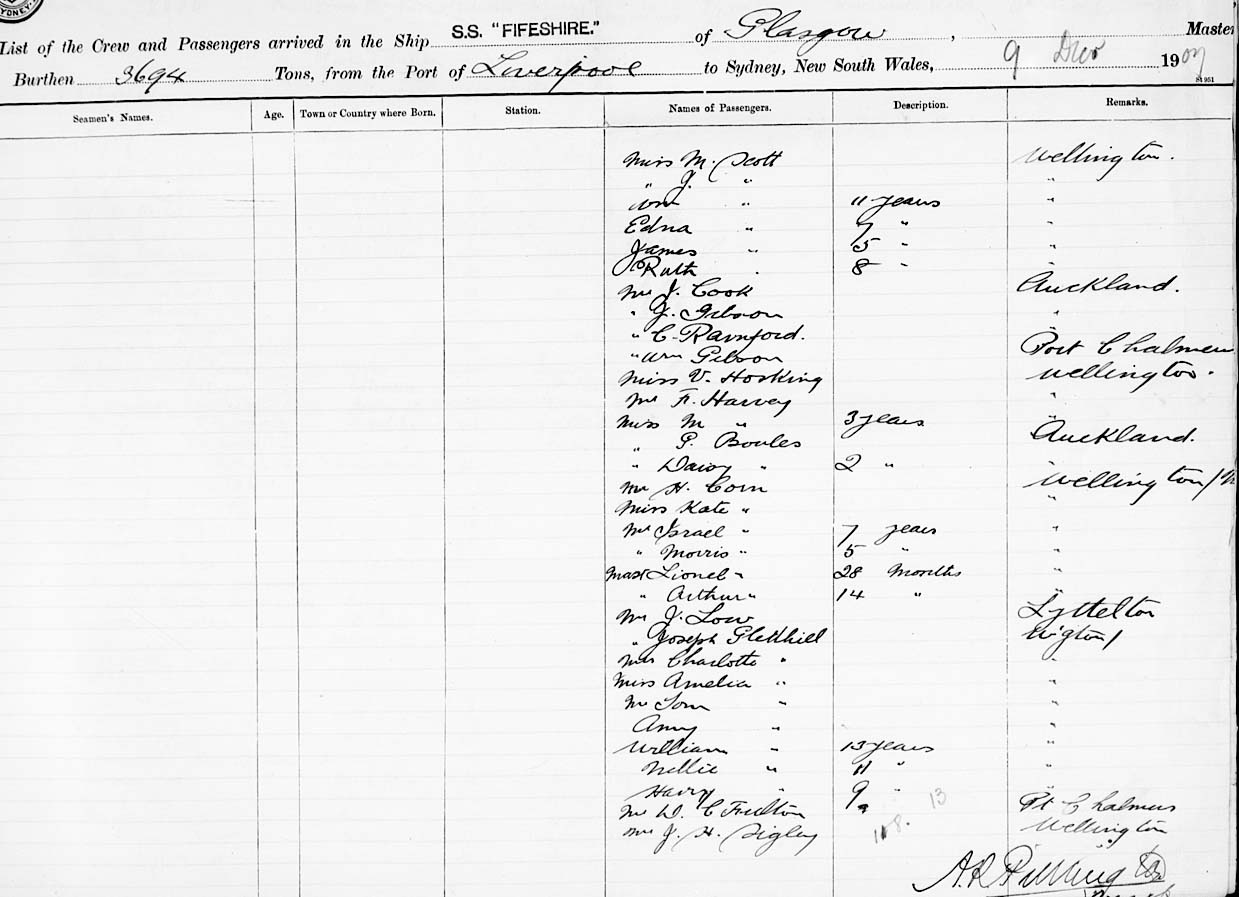 SYDNEY.
List of the Crew and Passengers arrived in the Ship S.S. "FIFESHIRE." of Glasgow, Master
Burthen 3694 Tons, from the Port of Liverpool to Sydney, New South Wales, 9 1907
Seamen's Names. Age. Town or Country where Born. Station. Names of Passengers. Description. Remarks.
Miss M. Scott Wellington.
" J. " "
Wm " 11 years "
Edna " 7 " "
James " 5 " "
Ruth " 8 " "
Mr J. Cook Auckland.
" J. Gibson "
" C. Rainford. "
" Wm Gibson Port Chalmers
Miss V. Hosking Wellington.
Mr F. Harvey "
Miss M " 3 years "
" P. Boules Auckland.
" Daisy " 2 " "
Mr H. Corn Wellington/
Miss Kate " "
Mr Israel " 7 years "
" Morris " 5 " "
Mast Lionel " 28 Months "
" Arthur " 14 " "
Mr J. Low Lyttelton
" Joseph Gledhill W'gton/
Mrs Charlotte " "
Miss Amelia " "
Mr Tom " "
Amy " "
William " 13 years "
Nellie " 11 " "
Harry " 9 " "
Mr D. C Fulton 13 Pt Chalmers
J. H. Sigley 118. Wellington